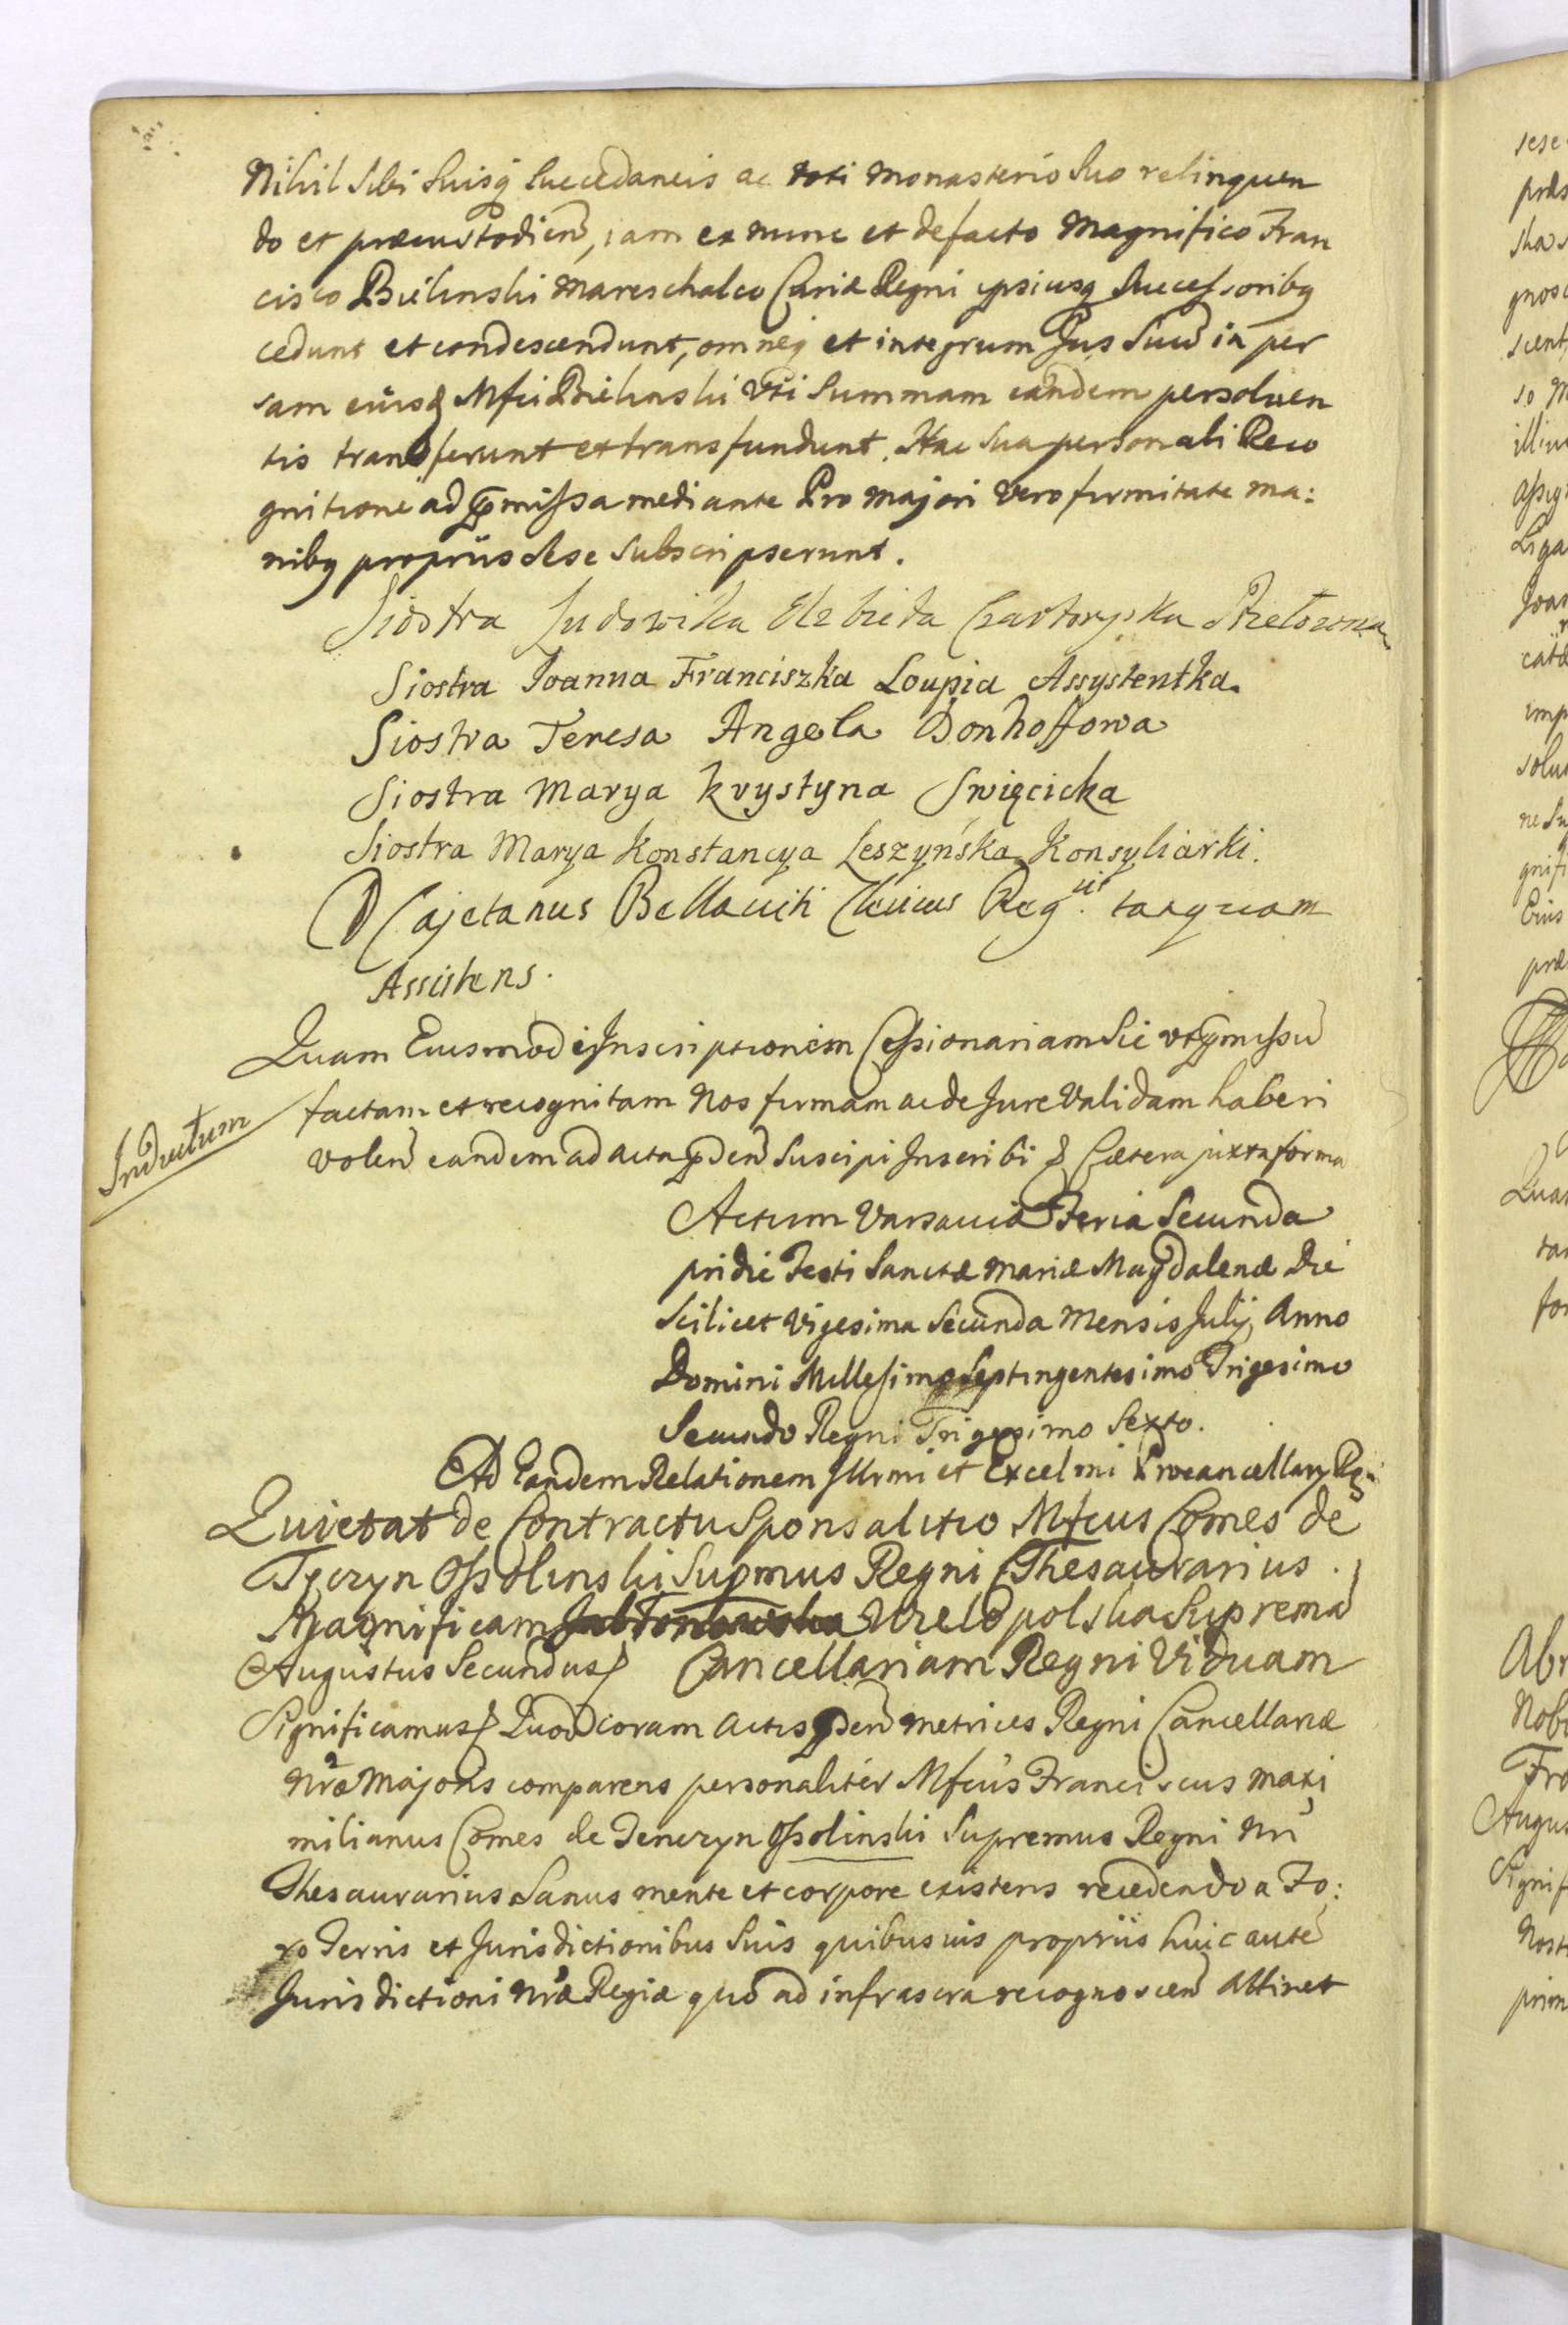 Nihil Sibi Suisq Succedaneis ac toti Monasterio Suo relinquen
do et præcustodien, iam ex nunc et de facto Magnifico Fran
cisco Bielinski Mareschalco Curiæ Regni ipsiusq Successoribq
cedunt et condescendunt, omneq et integrum Jus Suu in per
sam eiusd Mfci Bielinski Vti Summam eandem persoluen
tis transferunt et transfundunt. Hac Sua personali Reco
gnitione ad pmissa mediante Pro Majori Vero firmitate ma:
nibq propriis Sese Subscripserunt.
Siostra Ludowika Elzbieta Czartoryska Przełozona
Siostra Joanna Franciszka Loupia Assystentka.
Siostra Teresa Angela Donhoffowa
Siostra Marya Krystyna Swięcicka
Siostra Marya Konstancya Leszyńska Konsyliarki.
D Cajetanus Bellaviti Clericus Reg. tanquam
Assistens.
Quam Eiusmodi Inscriptionem Cessionariam Sic vt pmissu
factam et recognitam Nos firmam ac de Jure Validam haberi
Inductum
volen eandem ad acta pden Suscipi Inscribi & Cætera juxta forma
Actum Varsaviæ Feria Secunda
pridie Festi Sanctæ Mariæ Magdalenæ Die
Scilicet Vigesima Secunda Mensis Julij Anno
Domini Millesimo Septingentesimo Trigesimo
Secundo Regni Trigesimo Sexto.
Ad Eandem Relationem Illrmi et Excelmi Procancellarij Rgni
Quietat de Contractu Sponsalitio Mfcus Comes de
Tęczyn Ossolinski Supmus Regni Thesaurarius.
Magnificam Wielopolska Suprema
Augustus Secundus & Cancellariam Regni Viduam
Significamus & Quod coram Actis pden Metrices Regni Cancellariæ
Nræ Majoris comparens personaliter Mfcus Franciscus Maxi
milianus Comes de Tenczyn Ossolinski Supremus Regni Nri
Thesaurarius Sanus mente et corpore existens recedendo a Fo:
ro Terris et Jurisdictionibus Suis quibusuis propriis huic aute
Jurisdictioni Nræ Regiæ quo ad infrascra recognoscen Attinet